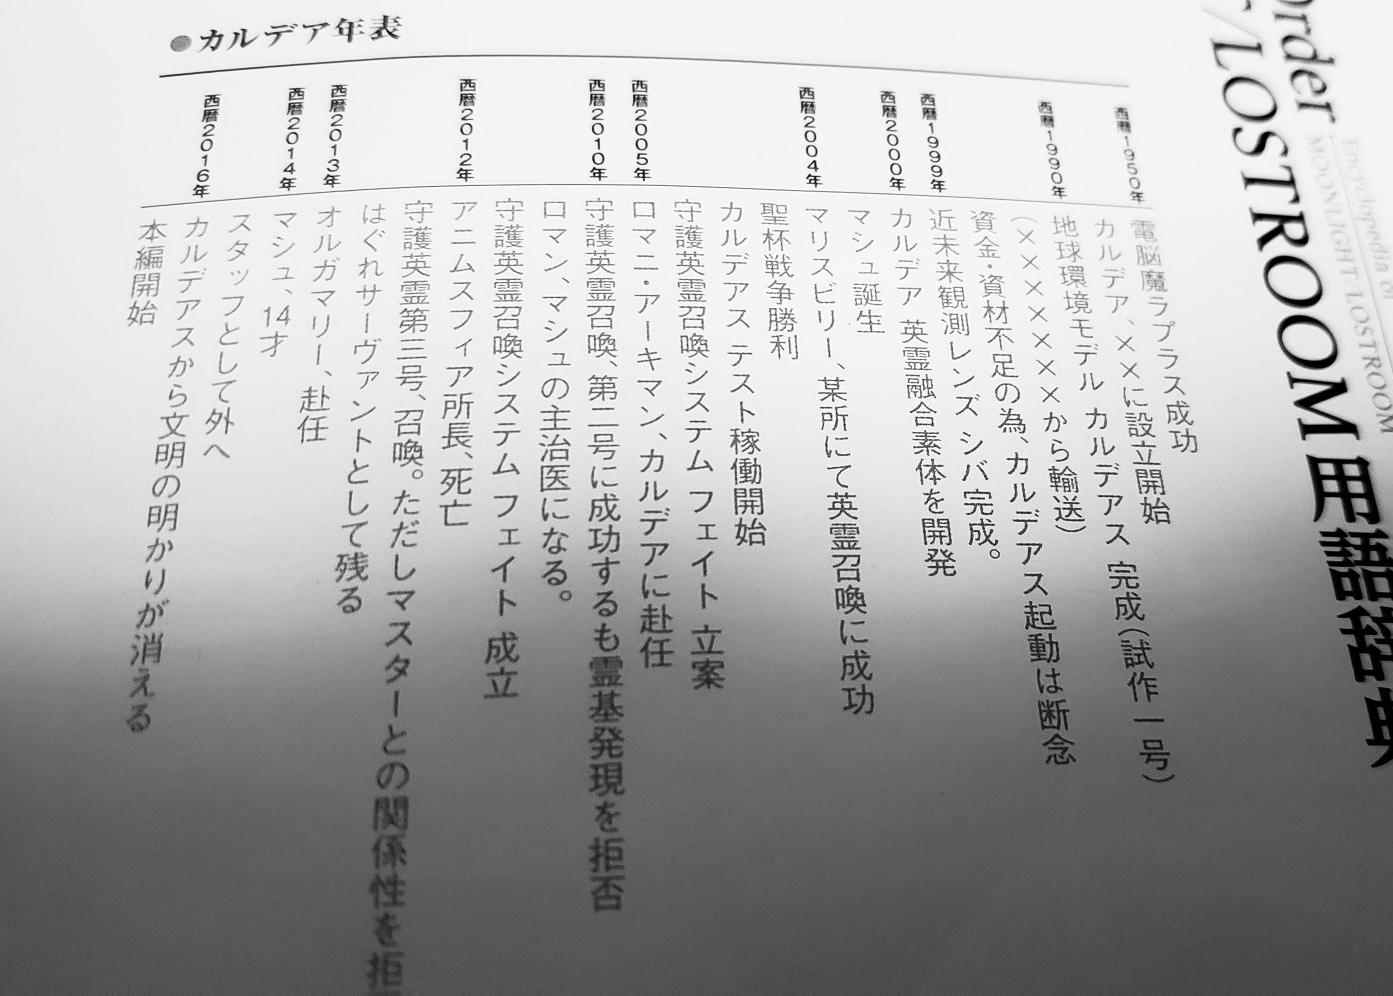 Order
/LOSTROOM用語辞典
Encyclopedia of
MOONLIGHT/LOSTROOM
●カルデア年表
西暦1950年 電脳魔ラプラス成功
カルデア、××に設立開始
西暦1990年 地球環境モデル カルデアス 完成(試作一号)
(××××××から輸送)
資金・資材不足の為、カルデアス起動は断念
西暦1999年 近未来観測レンズ シバ完成。
西暦2000年 カルデア 英霊融合素体を開発
マシュ誕生
西暦2004年 マリスビリー、某所にて英霊召喚に成功
聖杯戦争勝利
カルデアス テスト稼働開始
守護英霊召喚システム フェイト 立案
西暦2005年 ロマニ・アーキマン、カルデアに赴任
西暦2010年 守護英霊召喚、第二号に成功するも霊基発現を拒否
ロマン、マシュの主治医になる。
守護英霊召喚システム フェイト 成立
西暦2012年 アニムスフィア所長、死亡
守護英霊第三号、召喚。ただしマスターとの関係性を拒
はぐれサーヴァントとして残る
西暦2013年 オルガマリー、赴任
西暦2014年 マシュ、14才
スタッフとして外へ
西暦2016年 カルデアスから文明の明かりが消える
本編開始